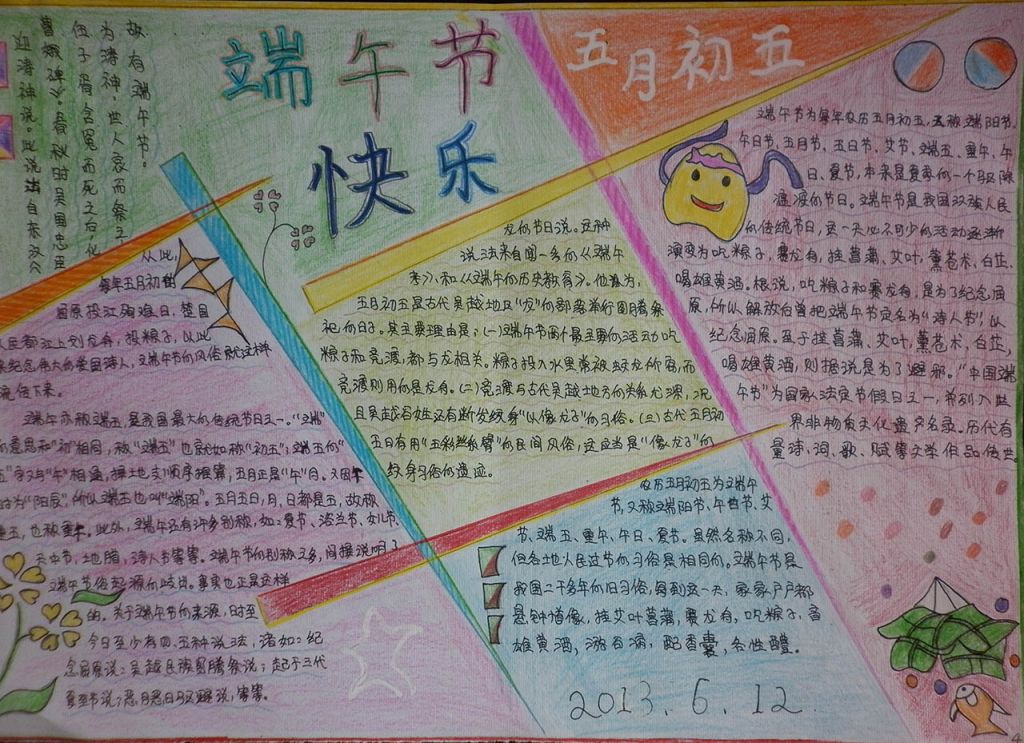 端午节
快乐
五月初五
故有端午节。
为涛神,世人哀而祭之
伍子胥含冤而死之后化
曹娥碑》。春秋时吴国忠臣
迎涛神说。此说出自东汉
从此,
每年五月初五
屈原投江殉难日,楚国
人民都江上划龙舟,投粽子,以此
来纪念伟大的爱国诗人,端午节的风俗就这样
流传下来。
端午亦称端五,是我国最大的传统节日之一。“端”
的意思和“初”相同,称“端五”也就如称“初五”;端五的“
五”字又与“午”相通,按地支顺序推算,五月正是“午”月。又因午
时为“阳辰”,所以端五也叫“端阳”。五月五日,月、日都是五,故称
重五,也称重午。此外,端午还有许多别称,如:夏节、浴兰节、女儿节、
天中节,地腊,诗人节等等。端午节的别称之多,间接说明了
端午节俗起源的歧出。事实也正是这样
的。关于端午节的来源,时至
今日至少有四、五种说法,诸如:纪
念屈原说;吴越民族图腾祭说;起于三代
夏至节说;恶月恶日驱避说,等等。
龙的节日说。这种
说法来自闻一多的《端午
考》、和《端午的历史教育》。他认为,
五月初五是古代吴越地区“龙”的部落举行图腾祭
祀的日子。其主要理由是;(一)端午节两个最主要的活动吃
粽子和竞渡,都与龙相关。粽子投入水里常被蛟龙所窃,而
竞渡则用的是龙舟。(二)竞渡与古代吴越地方的关系尤深,况
且吴越百姓还有断发纹身“以像龙子”的习俗。(三)古代五月初
五日有用“五彩丝系臂”的民间风俗,这应当是“像龙子”的
纹身习俗的遗迹。
端午节为每年农历五月初五,又称端阳节、
午日节,五月节、五日节、艾节、端五、重午、午
日、夏节,本来是夏季的一个驱除
瘟疫的节日。端午节是我国汉族人民
的传统节日,这一天必不可少的活动逐渐
演变为吃粽子,赛龙舟,挂菖蒲、艾叶,薰苍术、白芷,
喝雄黄酒。据说,吃粽子和赛龙舟,是为了纪念屈
原,所以解放后曾把端午节定名为“诗人节”。以
纪念屈原。至于挂菖蒲、艾叶,薰苍术,白芷,
喝雄黄酒,则据说是为了避邪。“中国端
午节”为国家法定节假日之一,并列入世
界非物质文化遗产名录。历代有
量诗、词、歌、赋等文学作品传世。
农历五月初五为端午
节,又称端阳节、午日节、艾
节、端五、重午、午日、夏节。虽然名称不同,
但各地人民过节的习俗是相同的。端午节是
我国二千多年的旧习俗,每到这一天,家家户户都
悬钟馗像,挂艾叶菖蒲,赛龙舟,吃粽子,
雄黄酒,游百病,配香囊,备牲醴。
2013.6.12